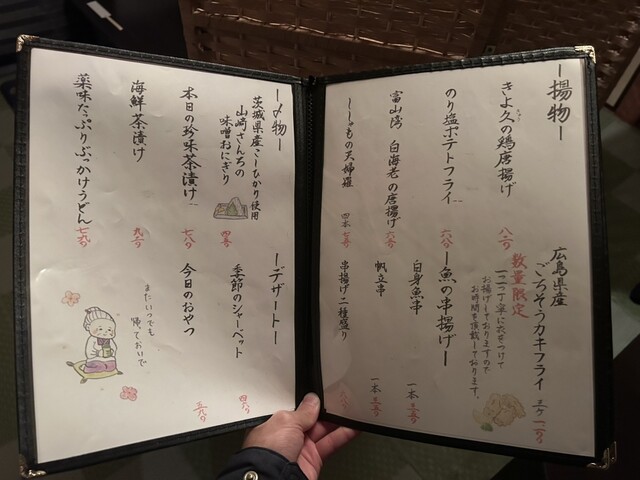 ー揚物ー
きよ久の鶏唐揚げ
八〇
のり塩ポテトフライ
六八
富山湾 白海老の唐揚げ
六八〇
ししゃもの天婦羅
四本
広島県産
ごちそうカキフライ
三ヶ
数量限定
一つ一つ丁寧に衣をつけて
お揚げしておりますので
お時間を頂戴しております。
ー魚の串揚げー
白身魚串
一本
帆立串
一本
串揚げ二種盛り
ー〆物ー
茨城県産こしひかり使用
山崎さんちの
味噌おにぎり
本日の珍味茶漬け
海鮮茶漬け
薬味たっぷりぶっかけうどん
ーデザートー
季節のシャーベット
今日のおやつ
またいつでも
帰っておいで